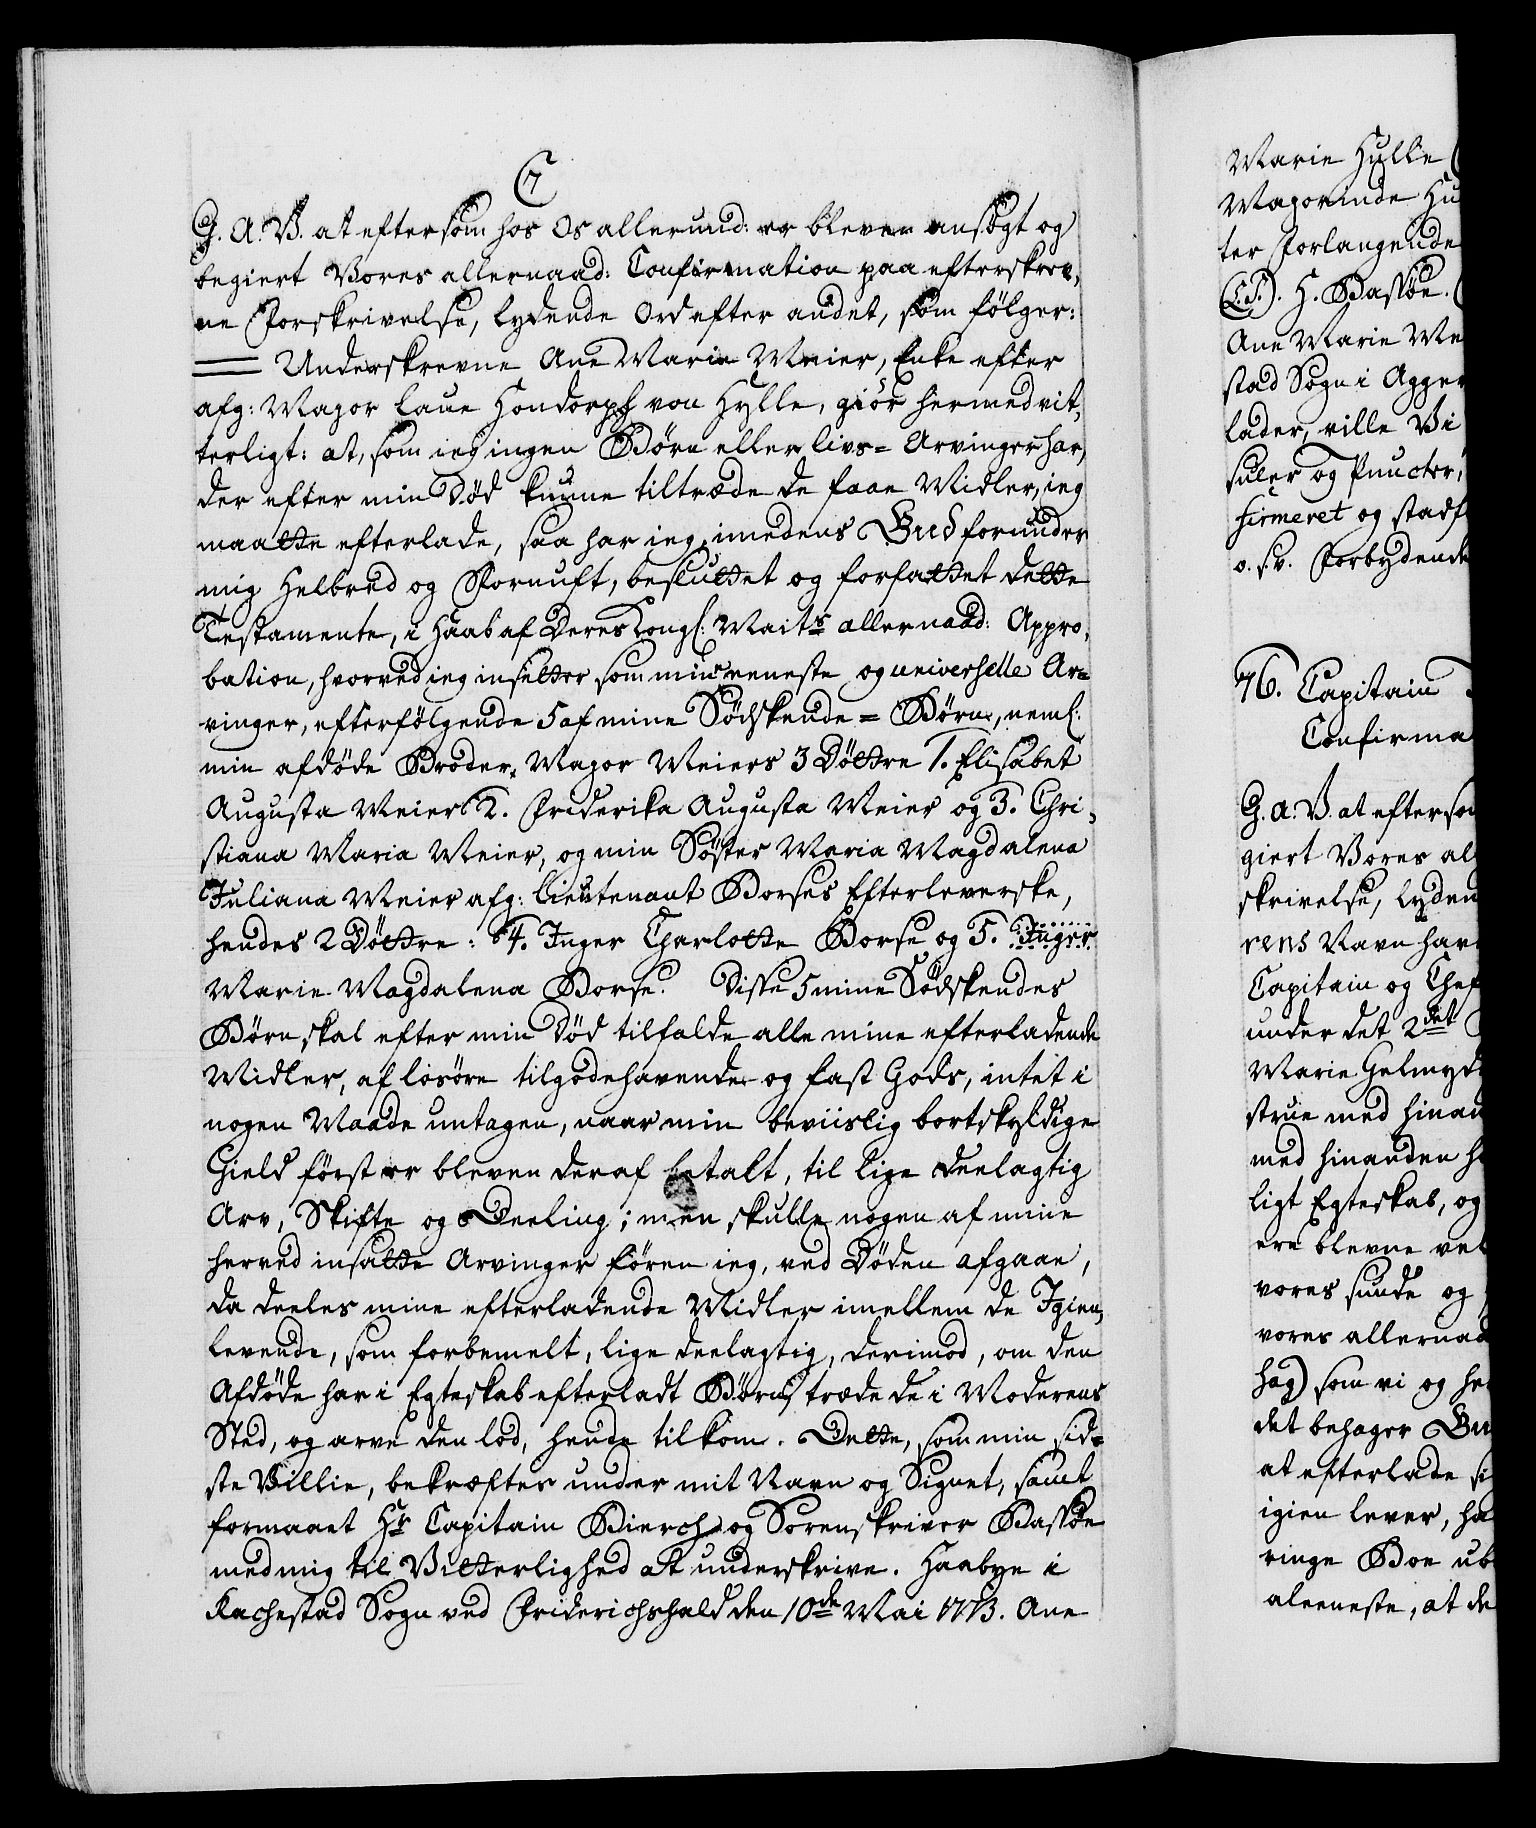 C7
G. A. V. at eftersom hos Os allerund: er bleven ansøgt og
begiert Vores allernaad: Confirmation paa efterskrev,
ne Forskrivelse, lydende Ord efter andet, som følger:
Underskrevne Ane Maria Meier, Enke efter
afg: Major Laue Hondorph von Hylle, giør hermed vit,
terligt: at, som ieg ingen Børn eller livs= Arvinger har,
der efter min Død kunne tiltræde de faae Midler, ieg
maatte efterlade, saa har ieg, imedens Gud forunder
mig Helbred og Fornuft, besluttet og forfattet dette
Testamente, i Haab af Deres Kongl: Maits allernaad: Appro,
bation, hvorved ieg insetter som mine eeneste og universelle Ar=
vinger, efterfølgende 5 af mine Sødskende= Børn, neml:
min afdøde Broder, Major Meiers 3 Døttre 1. Elisabet
Augusta Meier 2. Friderika Augusta Meier og 3. Chri,
stiana Maria Meier, og min Søster Maria Magdalena
Juliana Meier afg: Lieutenant Borses Efterleverske,
hendes 2 Døttre: 4. Inger Charlotte Borse og 5. Inger
Marie Magdalena Borse. Disse 5 mine Sødskendes
Børn skal efter min Død tilfalde alle mine efterladende
Midler, af løsøre tilgodehavende og fast Gods, intet i
nogen Maade untagen, naar min beviislig bortskyldige
Gield først er bleven deraf betalt, til lige deelagtig
Arv, Skifte og Deeling; men skulle nogen af mine
herved insatte Arvinger fören ieg, ved Døden afgaae,
da deeles mine efterladende Midler imellem de Igien,
levende, som forbemelt, lige deelagtig, derimod, om den
Afdøde har i Egteskab efterladt Børn, træde de i Moderens
Sted, og arve den lod, hende tilkom. Dette, som min sid=
ste Villie, bekræftes under mit Navn og Signet, samt
formaaet Hr Capitain Bierch og Sorenskriver Bassøe
med mig til Vitterlighed at underskrive. Haabye i
Rachestad Sogn ved Friderichshald den 10de Mai 1773. Ane
Marie Hulle (
Majorinde Hu
ter Forlangende
(L.S.). H. Bassøe. (
Ane Marie Me
stad Sogn i Agger
lader, ville Vi
suler og Puncter,
firmeret og stadf
o. s. v. Forbydende
76. Capitain
Confirma
G. A. V. at efterso
giert Vores al
skrivelse, lyden
rens Navn har
Capitain og Chef
under det 2det
Marie Gelmyd
strue med hinan
med hinanden h
ligt Egteskab, og
ere blevne ve
vores sunde og
vores allernaad
hag) som vi og he
det behager Gu
at efterlade si
igien lever, ha
ringe Boe ub
aleeneste, at de